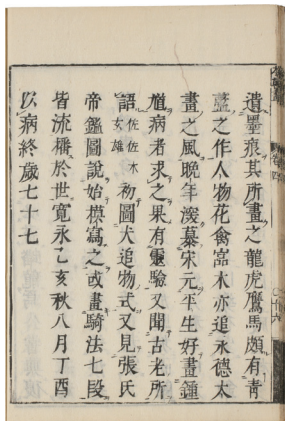 遺墨痕其所畫之龍虎鷹馬頗有青
藍之作人物花禽富木亦追永德太
畫之風晚年深慕宋元平生好畫鍾
馗病者求之果有靈驗又聞古老所
語佐佐木玄雄初圖犬追物式又見張氏
帝鑑圖說始摸寫之或畫騎法七段
皆流播於世寬永乙亥秋八月丁酉
以病終歲七十七